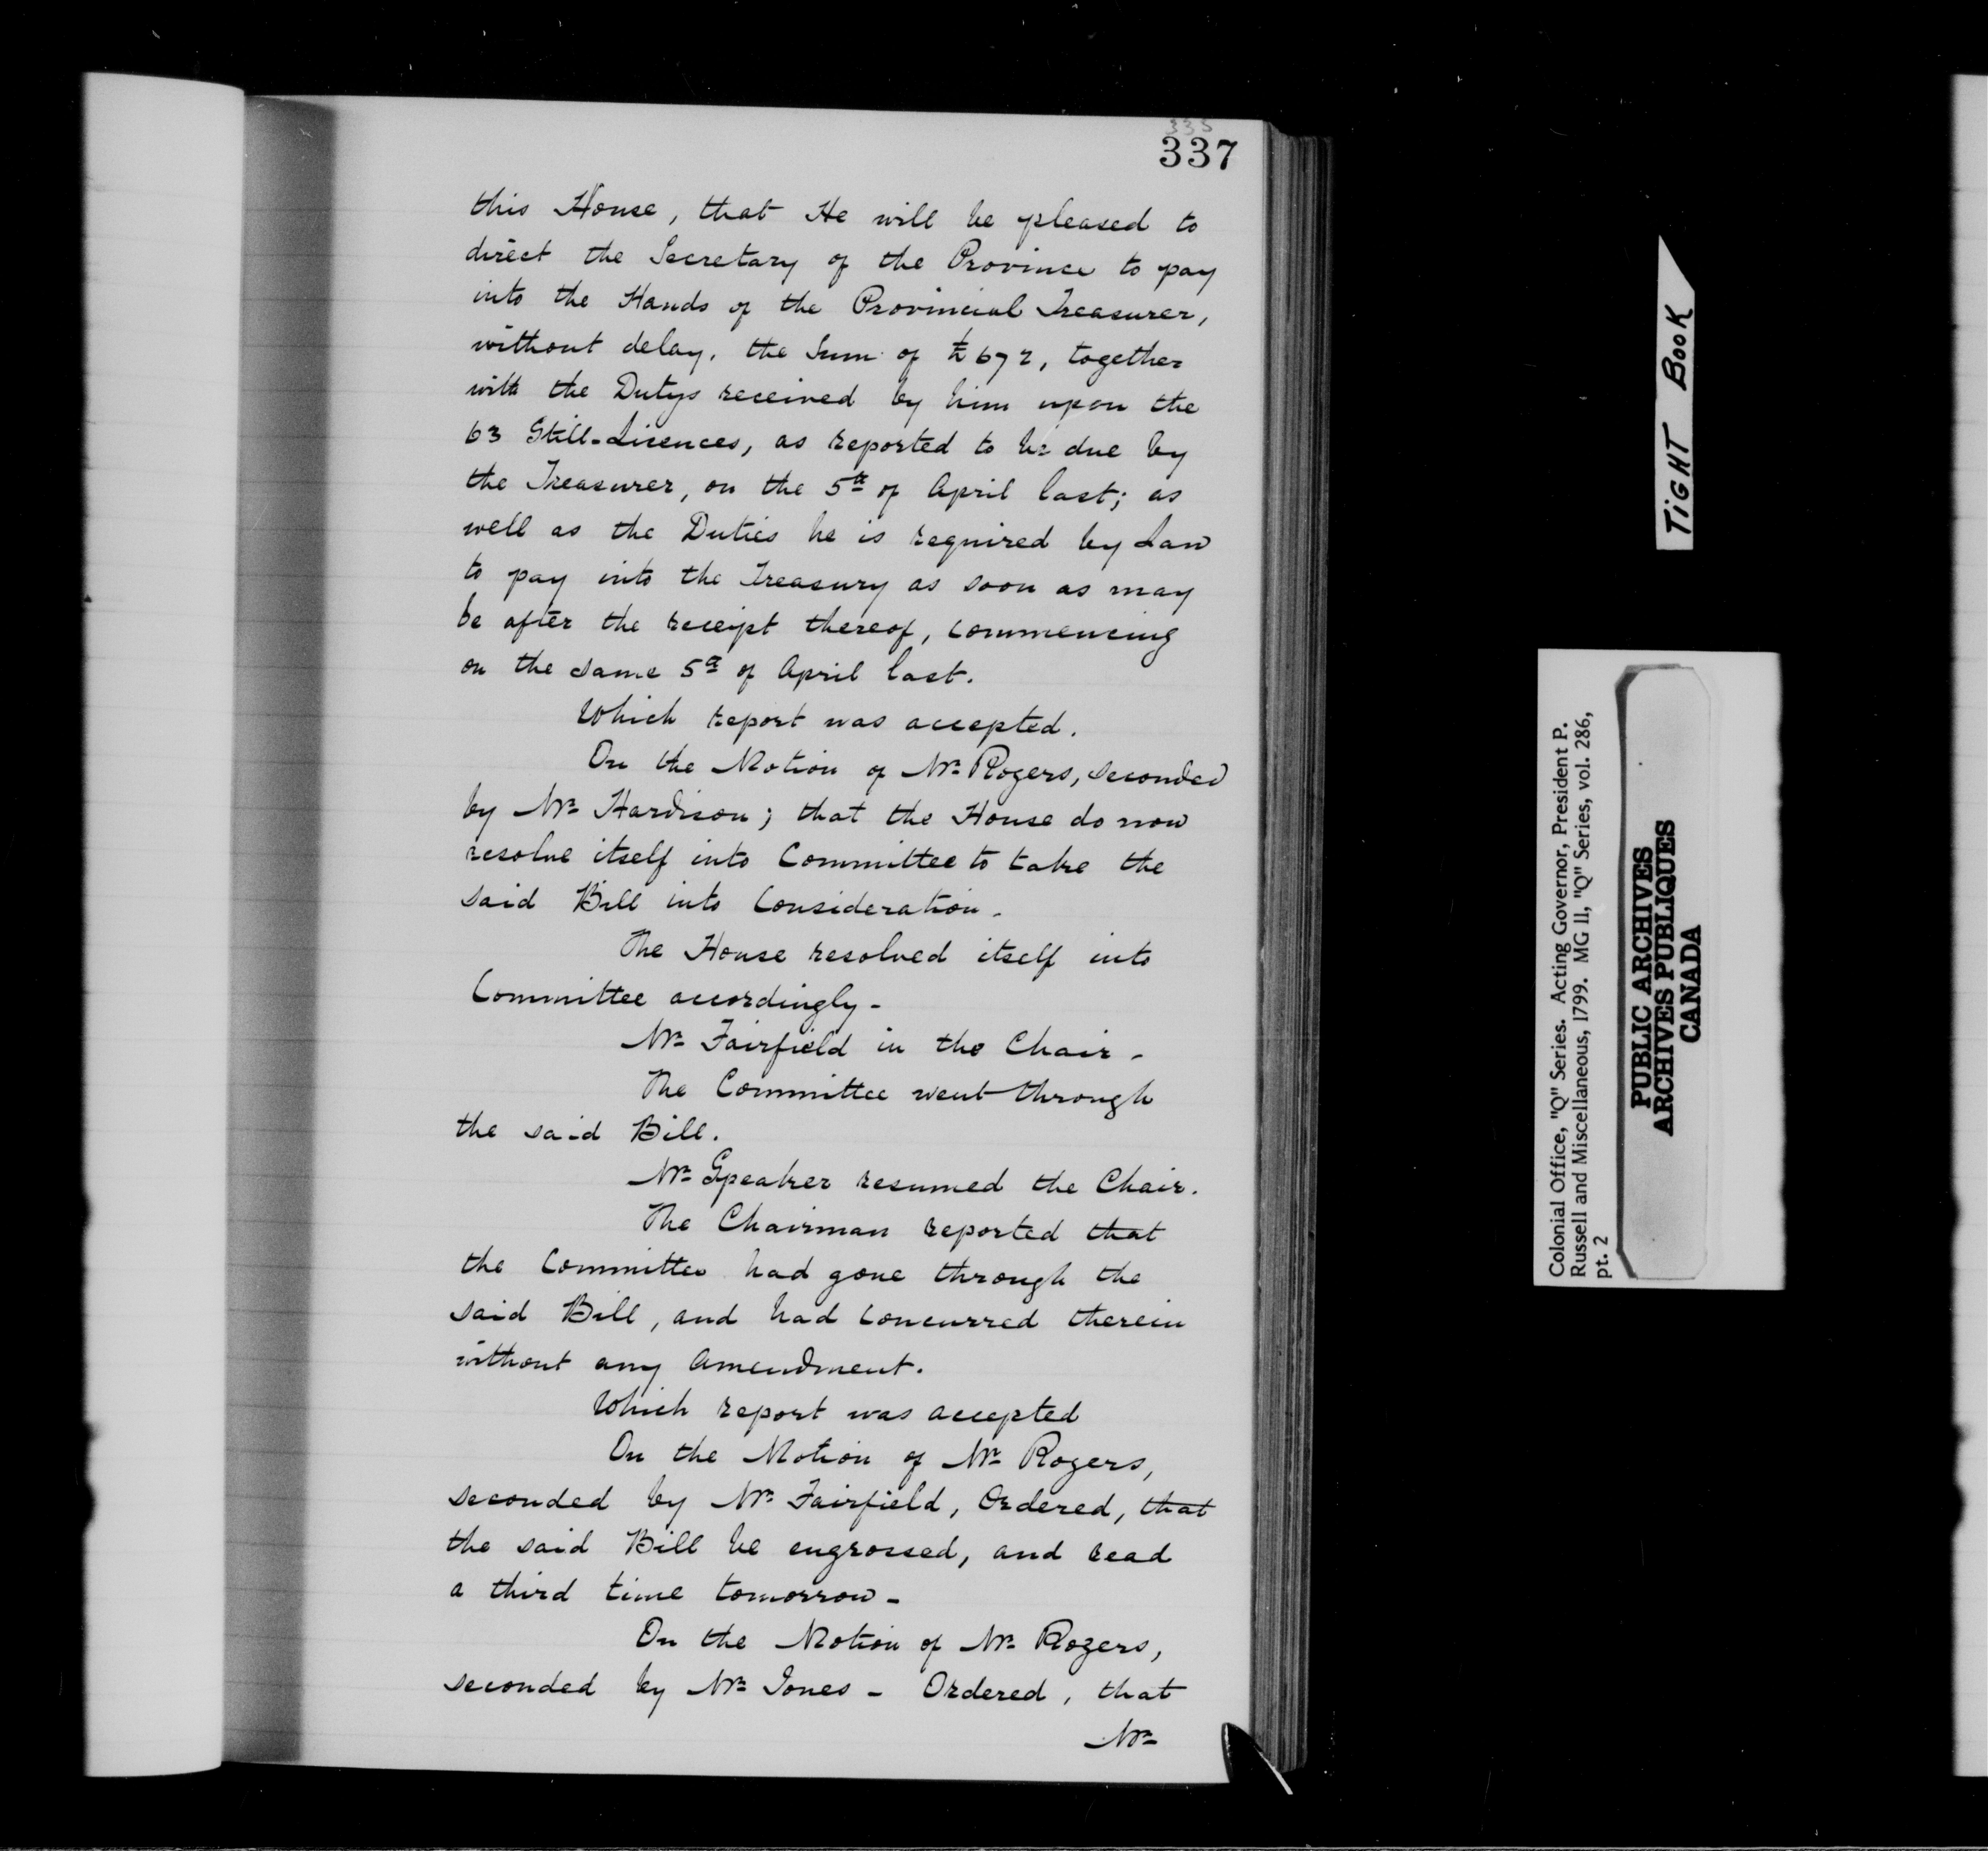 333
337
this House, that He will be pleased to
direct the Secretary of the Province to pay
into the Hands of the Provincial Treasurer,
without delay, the Sum of £672, together
with the Dutys received by him upon the
63 Still-Licences, as reported to be due by
the Treasurer, on the 5th of April last; as
well as the Duties he is required by Law
to pay into the Treasury as soon as may
be after the receipt thereof, commencing
on the same 5th of April last.
Which report was accepted.
On the Motion of Mr Rogers, seconded
by Mr Hardison; that the House do now
resolve itself into Committee to take the
said Bill into Consideration.
The House resolved itself into
Committee accordingly -
Mr Fairfield in the Chair -
The Committee went through
the said Bill.
Mr Speaker resumed the Chair.
The Chairman reported that
the Committee had gone through the
said Bill, and had concurred therein
without any amendment.
Which report was accepted
On the Motion of Mr Rogers,
seconded by Mr Fairfield, Ordered, that
the said Bill be engrossed, and read
a third time tomorrow -
On the Motion of Mr Rogers,
seconded by Mr Jones - Ordered, that
Mr
TIGHT BOOK
Colonial Office, "Q" Series. Acting Governor, President P.
Russell and Miscellaneous, 1799. MG 11, "Q" Series, vol. 286,
pt. 2
PUBLIC ARCHIVES
ARCHIVES PUBLIQUES
CANADA